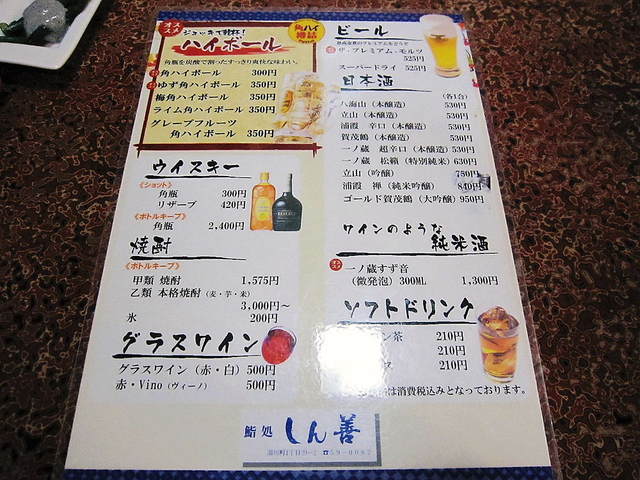 オススメ
ジョッキで乾杯!
ハイボール
角ハイ
樽詰
角瓶を炭酸で割ったすっきり爽快な味わい。
角ハイボール 300円
ゆず角ハイボール 350円
梅角ハイボール 350円
ライム角ハイボール 350円
グレープフルーツ
角ハイボール 350円
ウイスキー
《ショット》
角瓶 300円
リザーブ 420円
《ボトルキープ》
角瓶 2,400円
焼酎
《ボトルキープ》
甲類 焼酎 1,575円
乙類 本格焼酎(麦・芋・米)
3,000円~
氷 200円
グラスワイン
グラスワイン(赤・白)500円
赤・Vino(ヴィーノ) 500円
ビール
ザ・プレミアム・モルツ
525円
スーパードライ 525円
日本酒
(各1合)
八海山(本醸造) 530円
立山(本醸造) 530円
浦霞 辛口(本醸造) 530円
賀茂鶴(本醸造) 530円
一ノ蔵 超辛口(本醸造) 530円
一ノ蔵 松籟(特別純米) 630円
立山(吟醸) 780円
浦霞 禅(純米吟醸) 840円
ゴールド賀茂鶴(大吟醸) 950円
ワインのような
純米酒
一ノ蔵すず音
(微発泡)300ML 1,300円
ソフトドリンク
ン茶 210円
210円
210円
は消費税込みとなっております。
鮨処 しん善